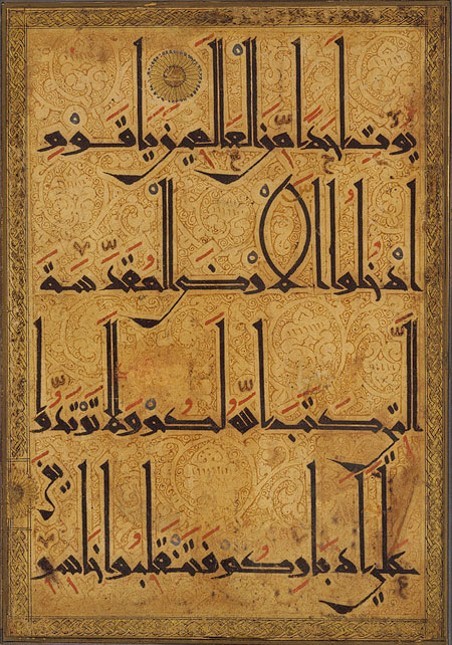 يُؤْتِ اَحَدًا مِّنَ الْعَالَمِينَ يَا قَوْمِ
ادْخُلُوا الْاَرْضَ الْمُقَدَّسَةَ
الَّتِي كَتَبَ اللَّهُ لَكُمْ وَلَا تَرْتَدُّوا
عَلَى اَدْبَارِكُمْ فَتَنْقَلِبُوا خَاسِرِينَ